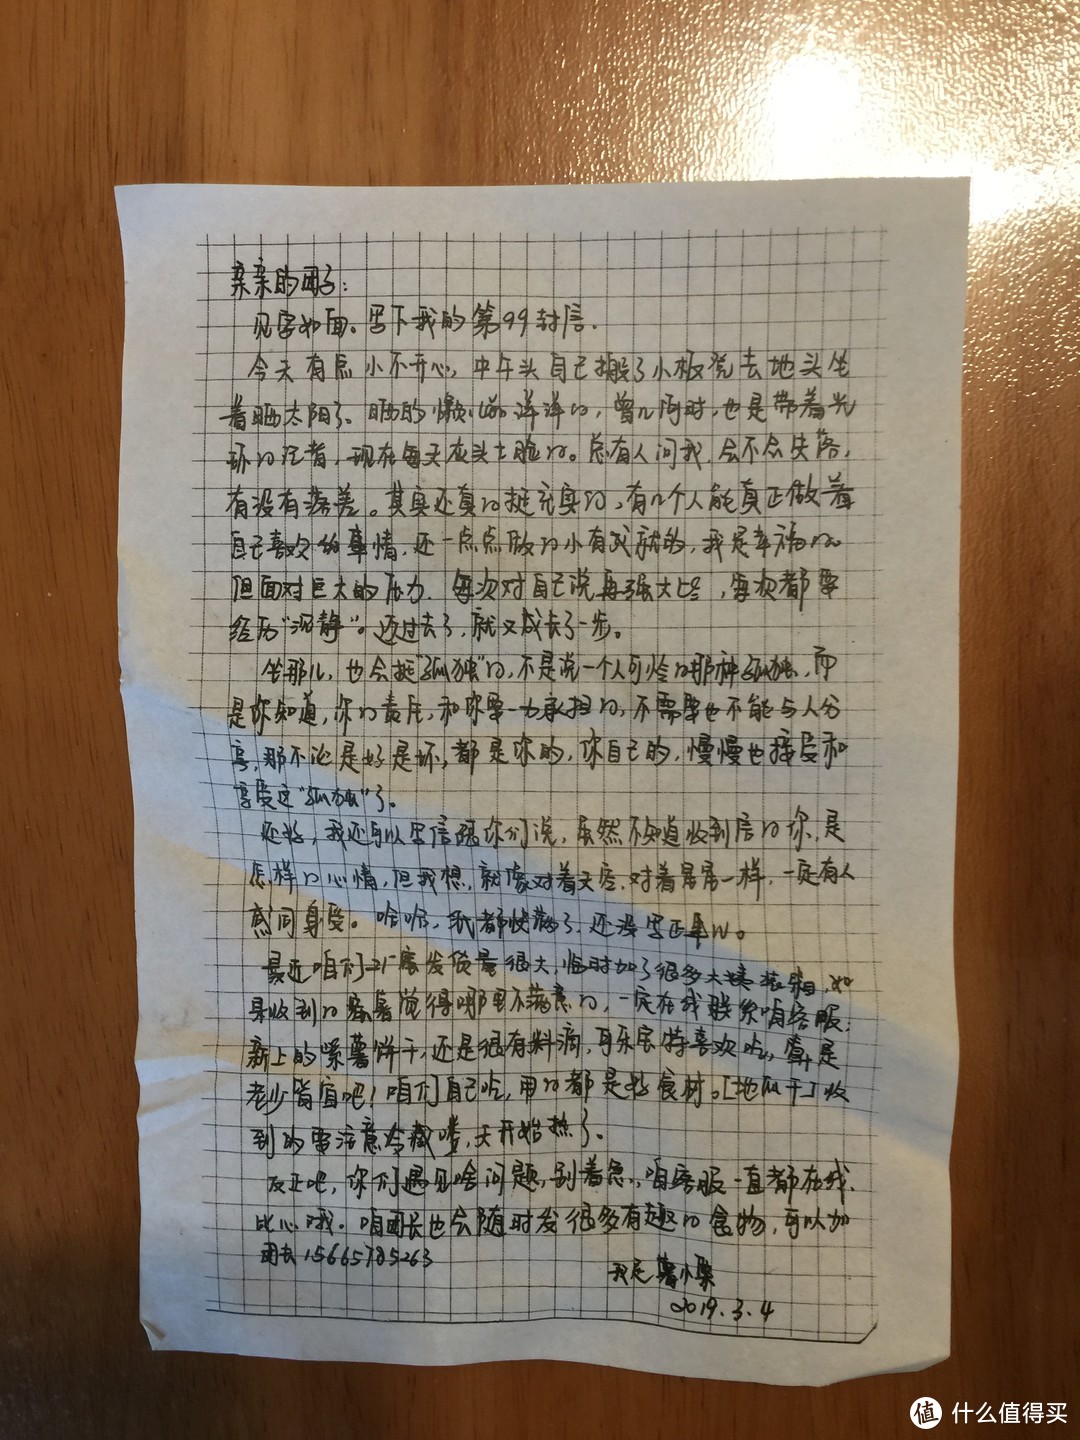 亲亲的团子：
见字如面。写下我的第99封信.
今天有点小不开心，中午头自己搬了小板凳去地头坐
着晒太阳了、晒的懒懒洋洋的，曾几何时，也是带着光
环的记者，现在每天灰头土脸的。总有人问我，会不会失落，
有没有落差。其实还真的挺充实的，有几个人能真正做着
自己喜欢的事情，还一点点做的小有成就的，我是幸福的。
但面对巨大的压力，每次对自己说再强大些，每次都要
经历"沉静"。还过去了，就又成长了一步。
坐那儿，也会挺"孤独"的，不是说一个人可怜的那种孤独，而
是你知道，你的责任，和你要一力承担的，不需要也不能与人分
享，那不论是好是坏，都是你的，你自己的，慢慢也接受和
享受这"孤独"了。
还好，我还可以写信跟你们说，虽然不知道收到信的你，是
怎样的心情，但我想，就像对着天空，对着星星一样，一定有人
感同身受。哈哈，我都快满了，还没写正事儿。
最近咱们工厂家发货量很大，临时加了很多大姨装箱，如
果收到的蜜薯觉得哪里不满意的，一定在线联系咱客服；
新上的紫薯饼干，还是很有料滴，可乐宝特喜欢吃，算是
老少皆宜吧！咱们自己吃，用的都是好食材。[地瓜干]收
到的要注意冷藏喽，天开始热了。
反正吧，你们遇见啥问题，别着急，咱客服一直都在线、
比心哦。咱团长也会随时发很多有趣的食物，可以加
团长15665785263
我是薯小栗
2019.3.4
值 什么值得买